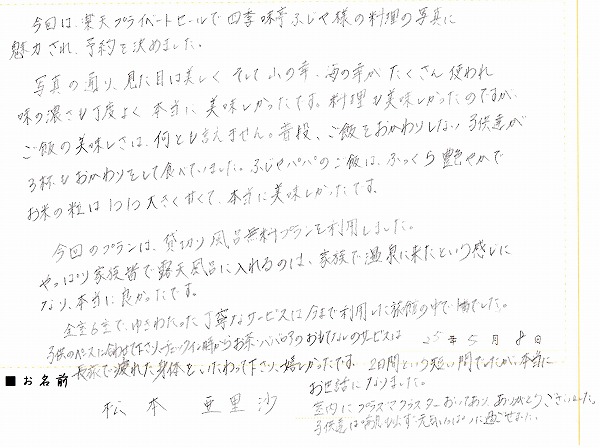 今回は、楽天プライベートセールで四季味亭ふじや様の料理の写真に
魅力され、予約を決めました。
写真の通り、見た目は美しく そして山の幸、海の幸が たくさん使われ
味の濃さも丁度よく 本当に 美味しかったです。料理も美味しかったのですが、
ご飯の美味しさは、何とも言えません。普段、ご飯をおかわりしない子供達が
3杯も おかわりをして食べていました。ふじやパパのご飯は、ふっくら艶やかで
お米の粒は1つ1つ大きく甘くて、本当に美味しかったです。
今回のプランは、貸切り風呂無料プランを利用しました。
やっぱり家族皆で露天風呂に入れるのは、家族で温泉に来たという感じに
なり、本当に良かったです。
全室6室で、ゆきわたった丁寧なサービスは今まで利用した旅館の中で一番でした。
子供のペースに合わせて下さり、チェックイン時からお茶・ババロアのおもてなしのサービスは
25年5月8日
長旅で疲れた身体をいたわって下さり、嬉しかったです。2日間という短い間でしたが、本当に
お世話になりました。
■お名前
松本 亜里沙
室内にプラズマクラスターがあり、ありがとうございました。
子供達は
元気いっぱいに過ごせました。